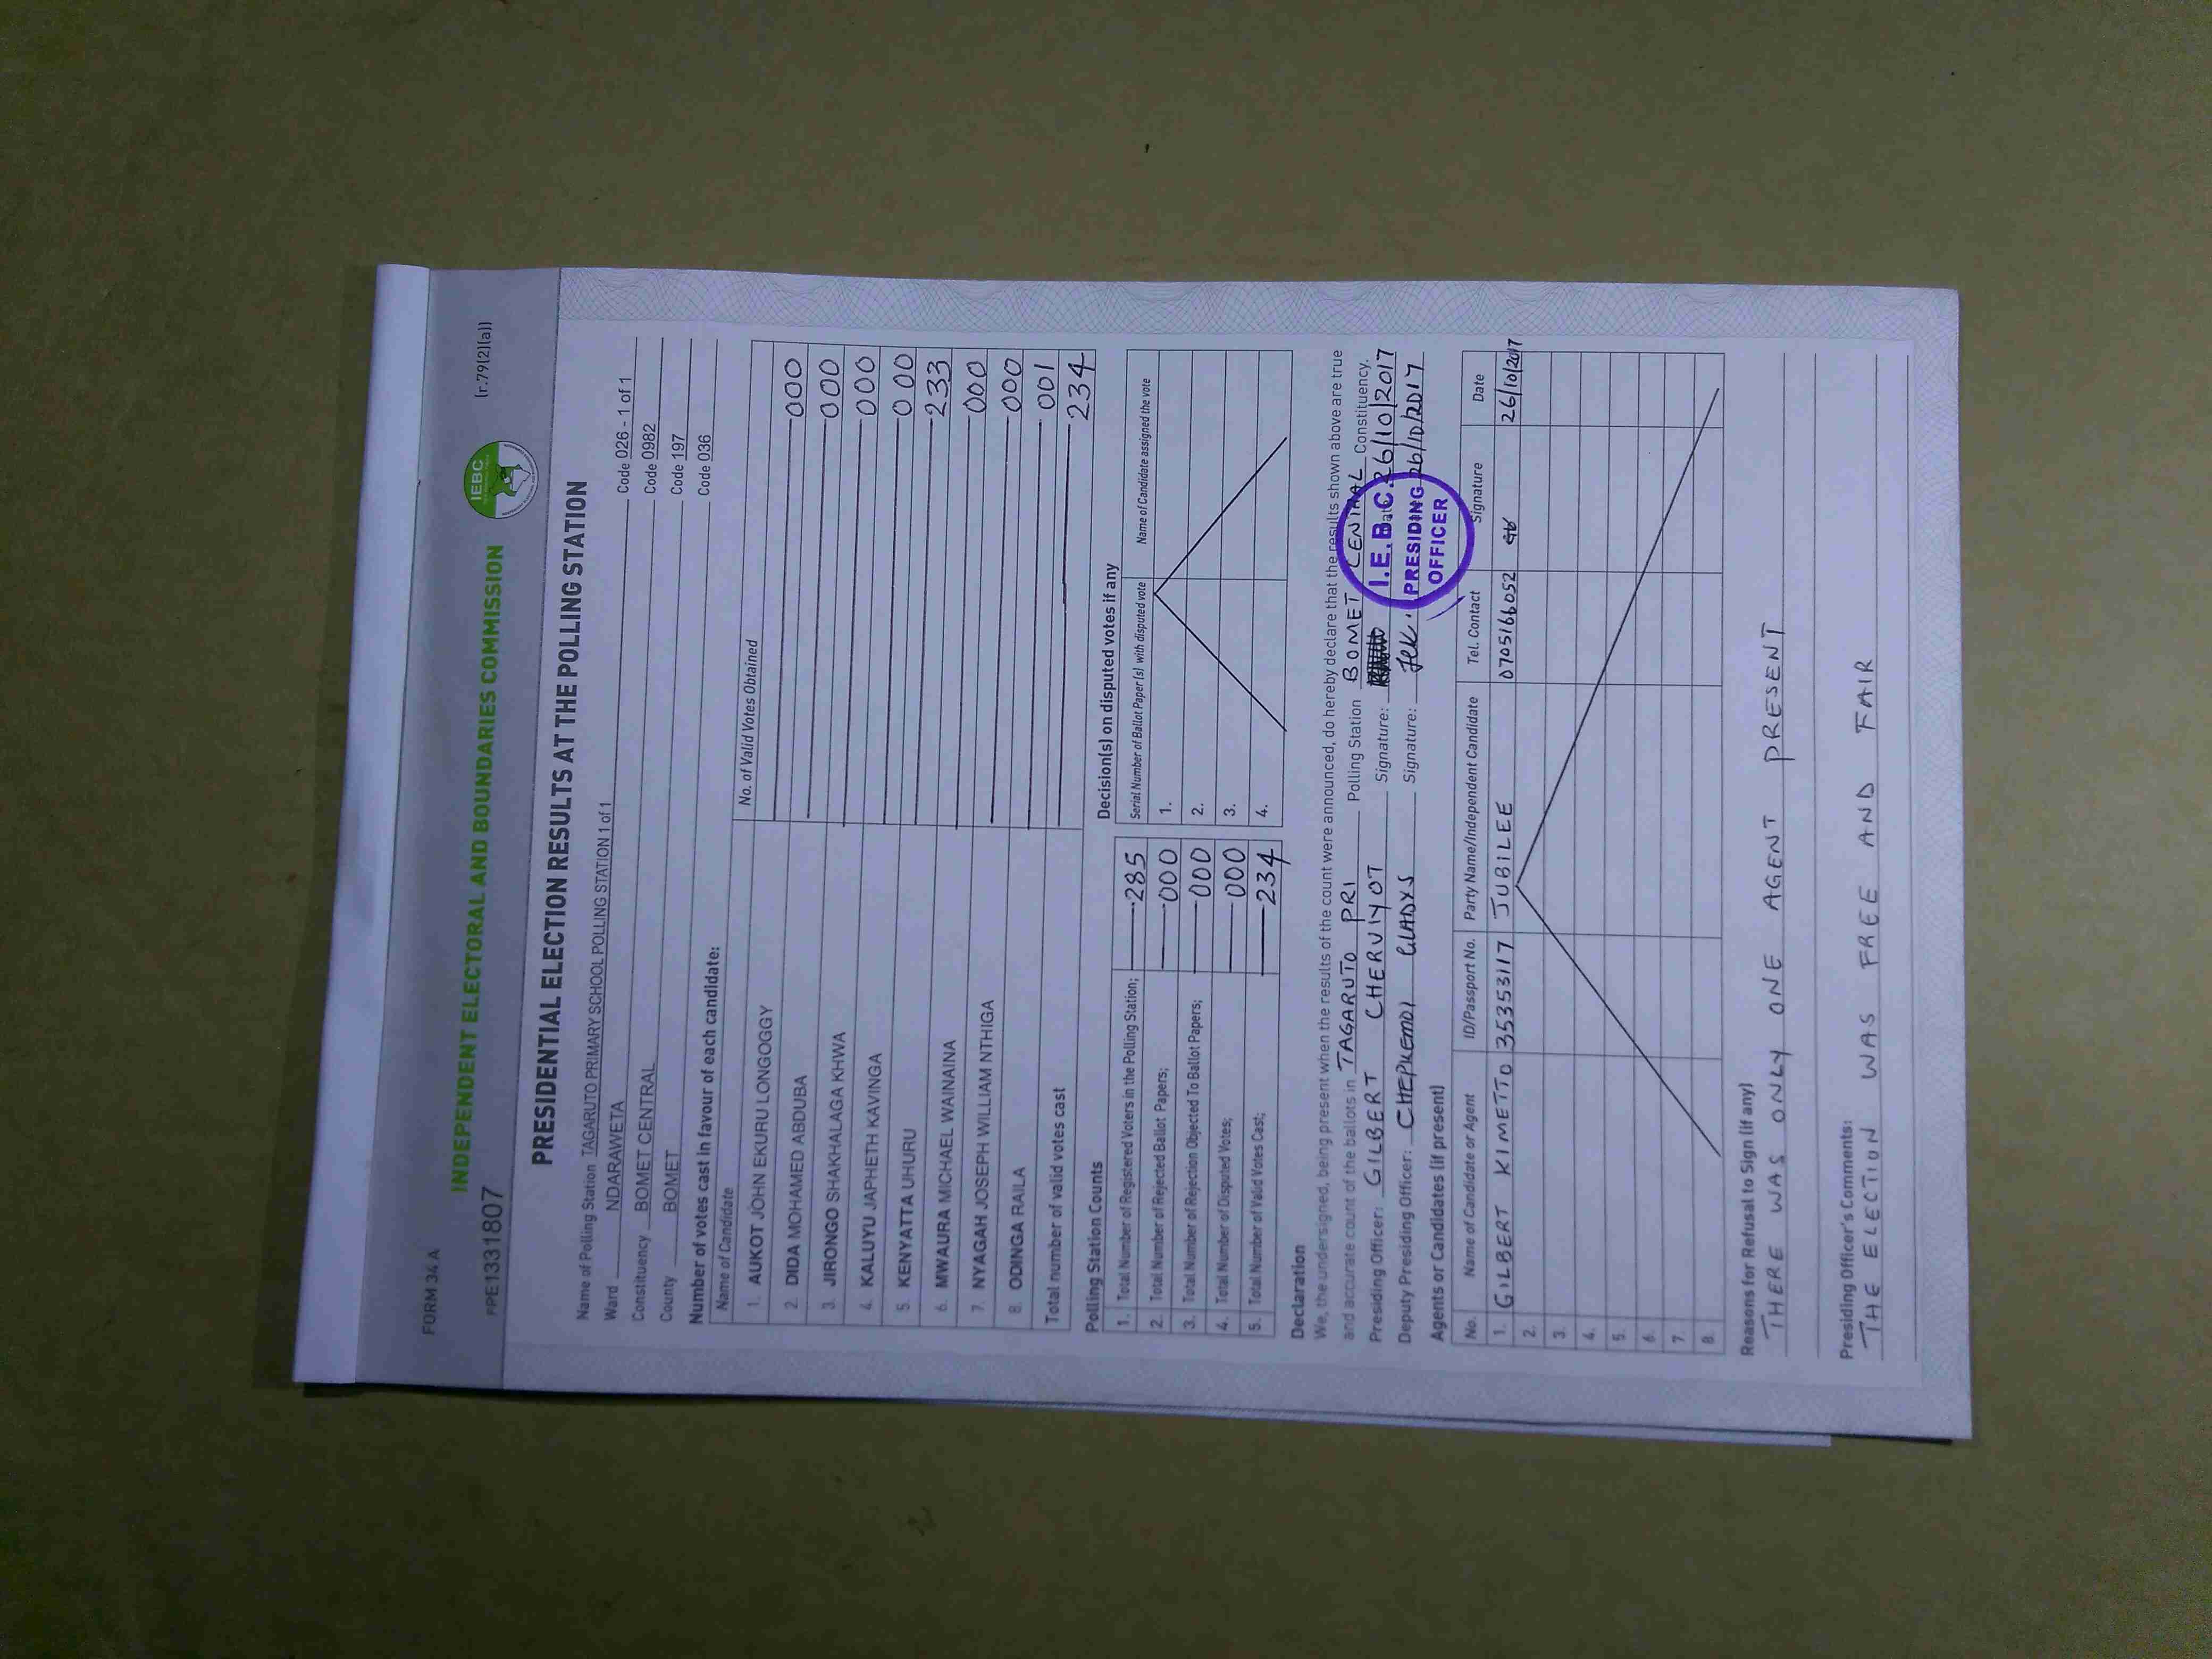 FORM 34 A (r.79(2)(a))
INDEPENDENT ELECTORAL AND BOUNDARIES COMMISSION
IEBC
PPE1331807
PRESIDENTIAL ELECTION RESULTS AT THE POLLING STATION
Name of Polling Station TAGARUTO PRIMARY SCHOOL POLLING STATION 1 of 1 Code 026 - 1 of 1
Ward NDARAWETA Code 0982
Constituency BOMET CENTRAL Code 197
County BOMET Code 036
Number of votes cast in favour of each candidate:
Name of Candidate No. of Valid Votes Obtained
1. AUKOT JOHN EKURU LONGOGGY 000
2. DIDA MOHAMED ABDUBA 000
3. JIRONGO SHAKHALAGA KHWA 000
4. KALUYU JAPHETH KAVINGA 000
5. KENYATTA UHURU 233
6. MWAURA MICHAEL WAINAINA 000
7. NYAGAH JOSEPH WILLIAM NTHIGA 000
8. ODINGA RAILA 001
Total number of valid votes cast 234
Polling Station Counts
1. Total Number of Registered Voters in the Polling Station; 285
2. Total Number of Rejected Ballot Papers; 000
3. Total Number of Rejection Objected To Ballot Papers; 000
4. Total Number of Disputed Votes; 000
5. Total Number of Valid Votes Cast; 234
Decision(s) on disputed votes if any
Serial Number of Ballot Paper (s) with disputed vote Name of Candidate assigned the vote
1.
2.
3.
4.
Declaration
We, the undersigned, being present when the results of the count were announced, do hereby declare that the results shown above are true
and accurate count of the ballots in TAGARUTO PRI Polling Station BOMET CENTRAL Constituency.
Presiding Officer: GILBERT CHERUIYOT Signature: 26/10/2017
Deputy Presiding Officer: CHEPKEMOI GLADYS Signature: 26/10/2017
I.E.B.C.
PRESIDING
OFFICER
Agents or Candidates (if present)
No. Name of Candidate or Agent ID/Passport No. Party Name/Independent Candidate Tel. Contact Signature Date
1. GILBERT KIMETTO 35353117 JUBILEE 0705166052 26/10/2017
2.
3.
4.
5.
6.
7.
8.
Reasons for Refusal to Sign (if any)
THERE WAS ONLY ONE AGENT PRESENT
Presiding Officer's Comments:
THE ELECTION WAS FREE AND FAIR